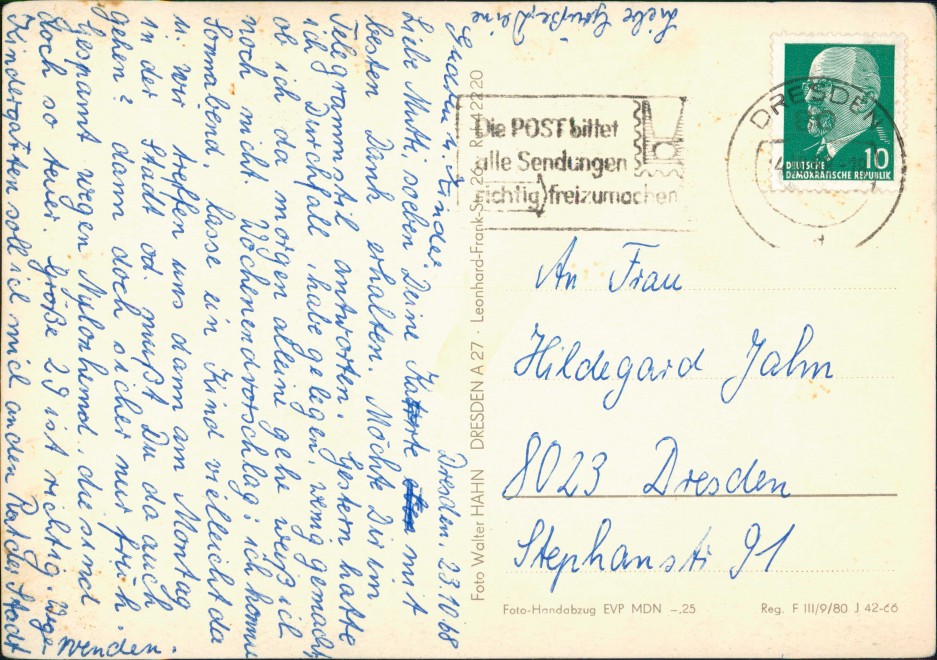 Dresden, 23.10.68
Liebe Mutti, soeben Deine Karte mit
besten Dank erhalten. Möchte Dir im
Telegrammstil antworten. Gestern hatte
ich Durchfall, habe gelegen, wenig gemacht
ob ich da morgen alleine gehe weiß ich
noch nicht. Wochenendvorschlag: ich komme
Sonnabend, lasse ein Kind vielleicht da
u. wir treffen uns dann am Montag
in der Stadt od. mußt Du da auch
gehen? dann doch sicher nur früh.
Gespannt wegen Nylonhemd, die sind
doch so teuer. Größe 29 ist richtig. Wegen
Kindergarten soll ich mich an den Rat der Stadt
wenden.
Liebe Grüße, Deine
u. Kinder.
Foto Walter HAHN DRESDEN A 27 · Leonhard-Frank-Str. 26 · Ruf 42220
Die POST bittet
alle Sendungen
richtig freizumachen
DRESDEN
DEUTSCHE
DEMOKRATISCHE REPUBLIK
10
An Frau
Hildegard Jahn
8023 Dresden
Stephanstr 91
Foto-Handabzug EVP MDN –,25
Reg. F III/9/80 J 42-66